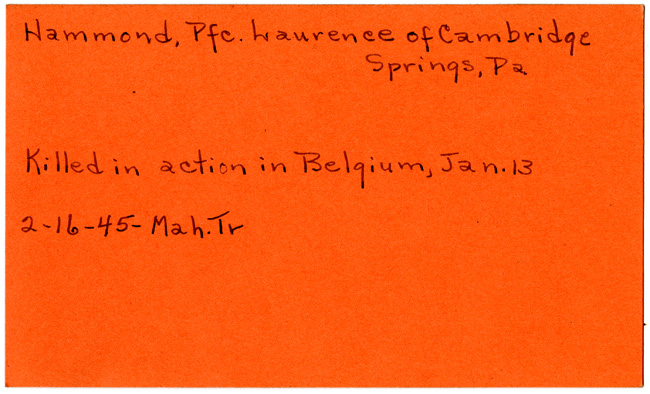 Hammond, Pfc. Laurence of Cambridge
Springs, Pa
Killed in action in Belgium, Jan. 13
2-16-45- Mah. Tr